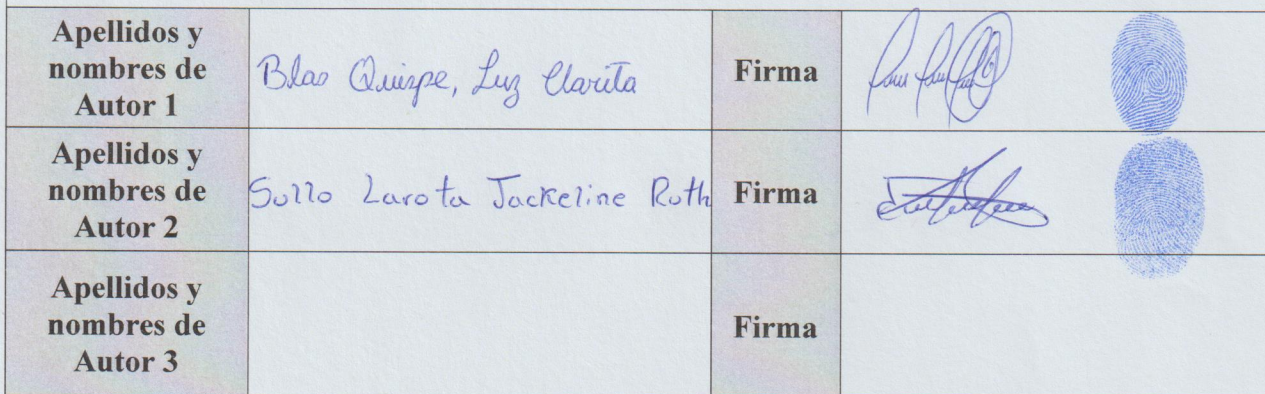 Apellidos y
nombres de
Autor 1
Blas Quispe, Luz Clarita
Firma
Apellidos y
nombres de
Autor 2
Sullo Larota Jackeline Ruth
Firma
Apellidos y
nombres de
Autor 3
Firma